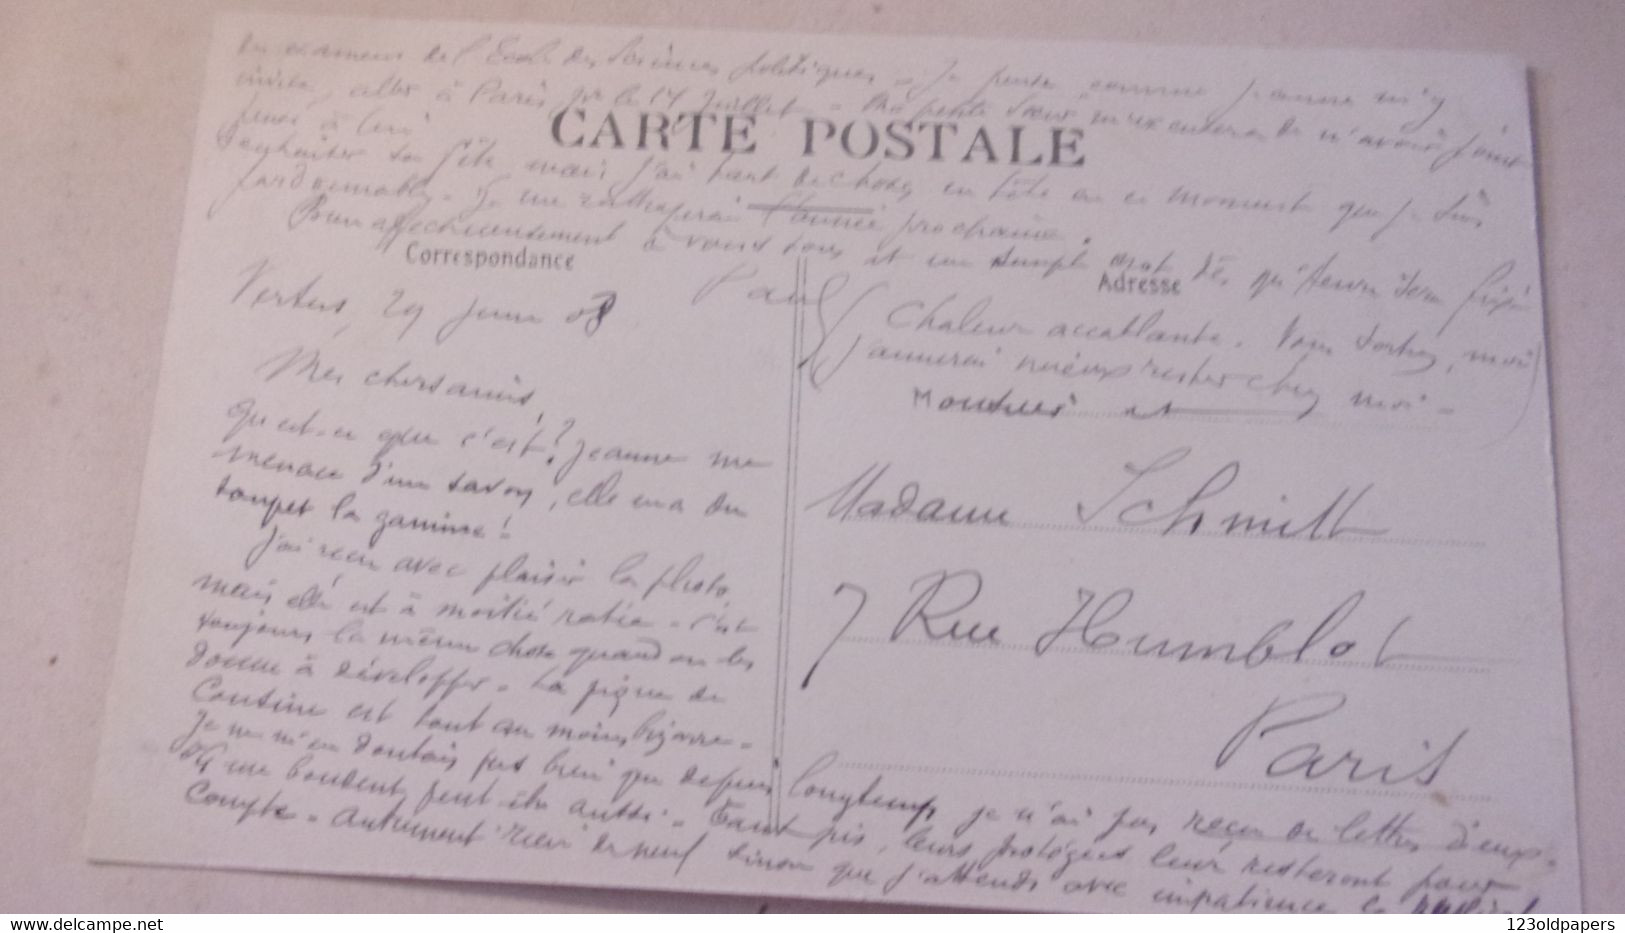 des examens de l'Ecole des Sciences politiques - Je pense comme Jeanne m'y
invite, aller à Paris pr le 14 Juillet - Ma petite Sœur m'excusera de n'avoir point
pensé à lui
souhaiter sa fête mais j'ai tant de choses en tête en ce moment que je suis
pardonnable - Je me rattraperai l'année prochaine.
Bien affectueusement à vous tous et un simple mot dès qu'heure sera fixée
CARTE POSTALE
Correspondance
Adresse
Paul
Vertus, 29 Juin 08
Mes chers amis,
Qu'est-ce que c'est ? Jeanne me
menace d'un savon, elle en a du
toupet la gamine !
J'ai reçu avec plaisir la photo,
mais elle est à moitié ratée - C'est
toujours la même chose quand on les
donne à développer - La figure de
Cousine est tout au moins bizarre -
Je ne m'en doutais pas bien que depuis longtemps je n'ai pas reçu de lettres d'eux -
Ils me boudent peut-être aussi - Tant pis, leurs protégés leur resteront pour
compte - Autrement rien de neuf sinon que j'attends avec impatience le
(Chaleur accablante. Vous sortez, moi
j'aimerai mieux rester chez moi -)
Monsieur et
Madame Schmitt
7 Rue Humblot
Paris
www.delcampe.net
123oldpapers